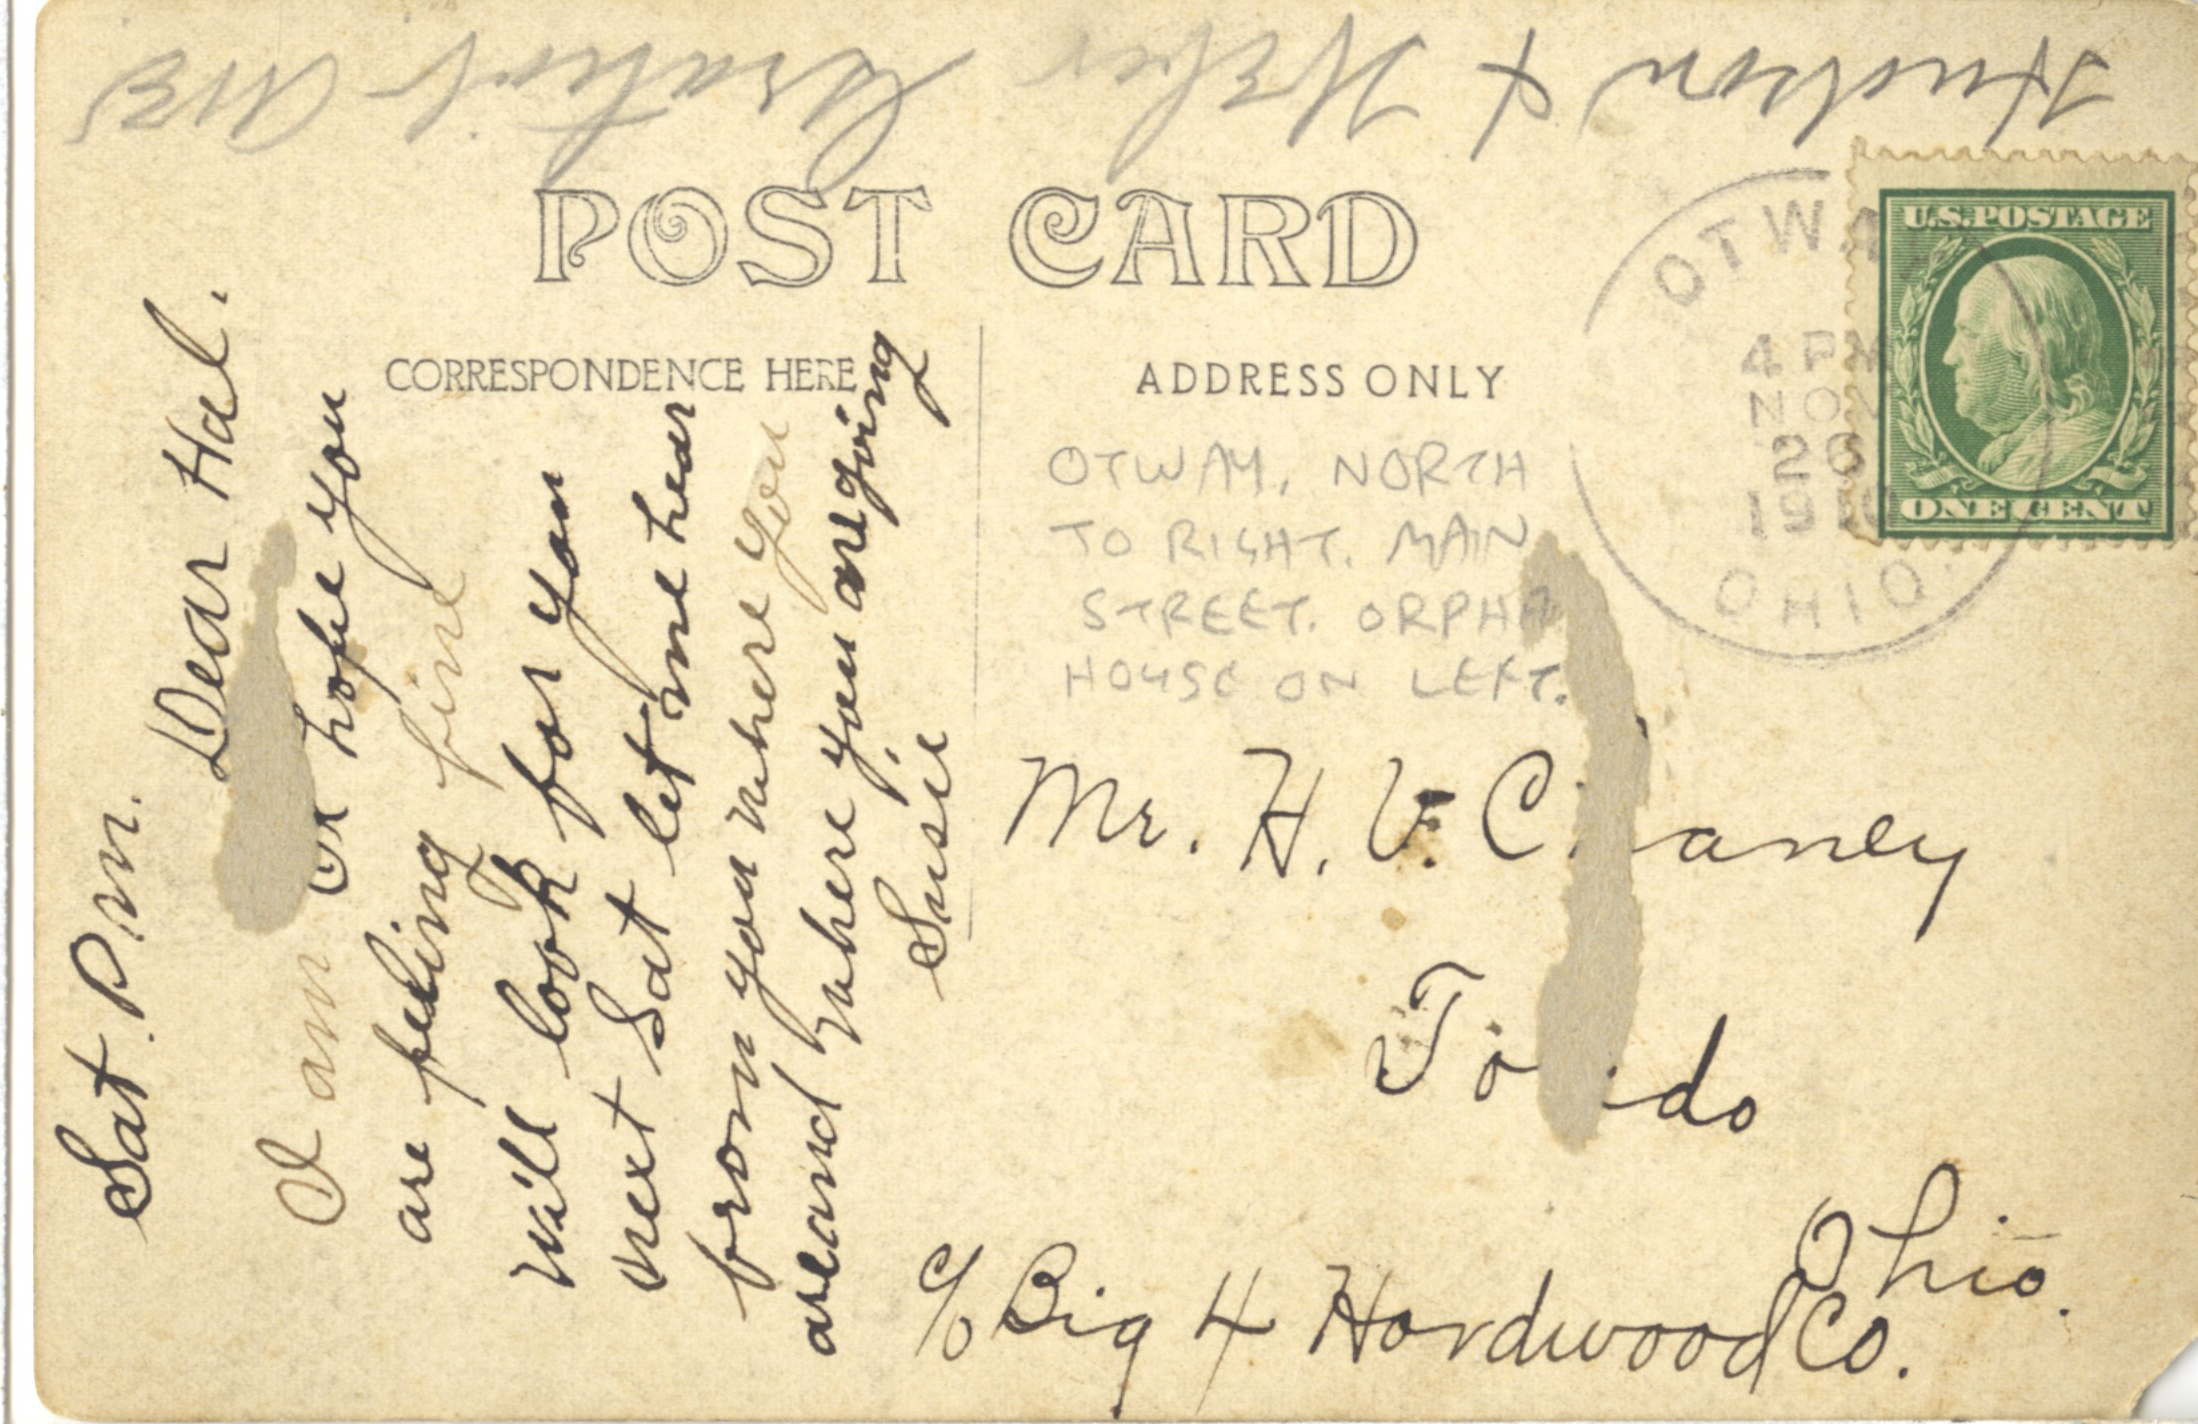 Hudson &
Gratiot ave
POST CARD
CORRESPONDENCE HERE
ADDRESS ONLY
U.S.POSTAGE
ONE CENT
OTWAY
4 PM
NOV
26
1910
OHIO.
OTWAY, NORTH
TO RIGHT. MAIN
STREET. ORPHA
HOUSE ON LEFT.
Sat. P.m.
Dear Hal.
I am hope you
are feeling fine
will look for you
next Sat let me hear
from you where you
are and where you are going
Susie
Mr. H. V. C aney
To do
Ohio.
c/o Big 4 Hardwood Co.